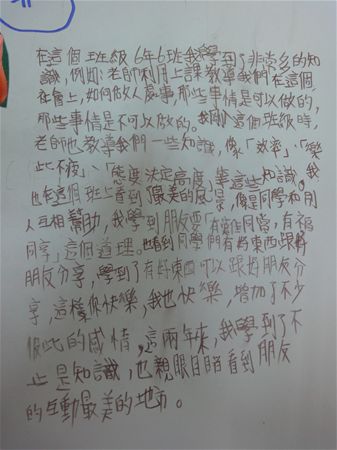 在這個班級6年6班我學到了非常多的知
識,例如:老師利用上課教導我們在這個
社會上,如何做人處事,那些事情是可以做的,
那些事情是不可以做的。我在這個班級時,
老師也教導我們一些知識,像「效率」、「樂
此不疲」、「態度決定高度」等這些知識。我
也在這個班上看到「最美的風」景,像是同學和別
人互相幫助,我學到朋友要「有難同當,有福
同享」這個道理。也看到同學們有好東西跟
朋友分享,學到了有好東西可以跟好朋友分
享,這樣你快樂,我也快樂,增加了不少
彼此的感情,這兩年來,我學到了不
止是知識,也親眼目睹看到朋友
的互動最美的地方。